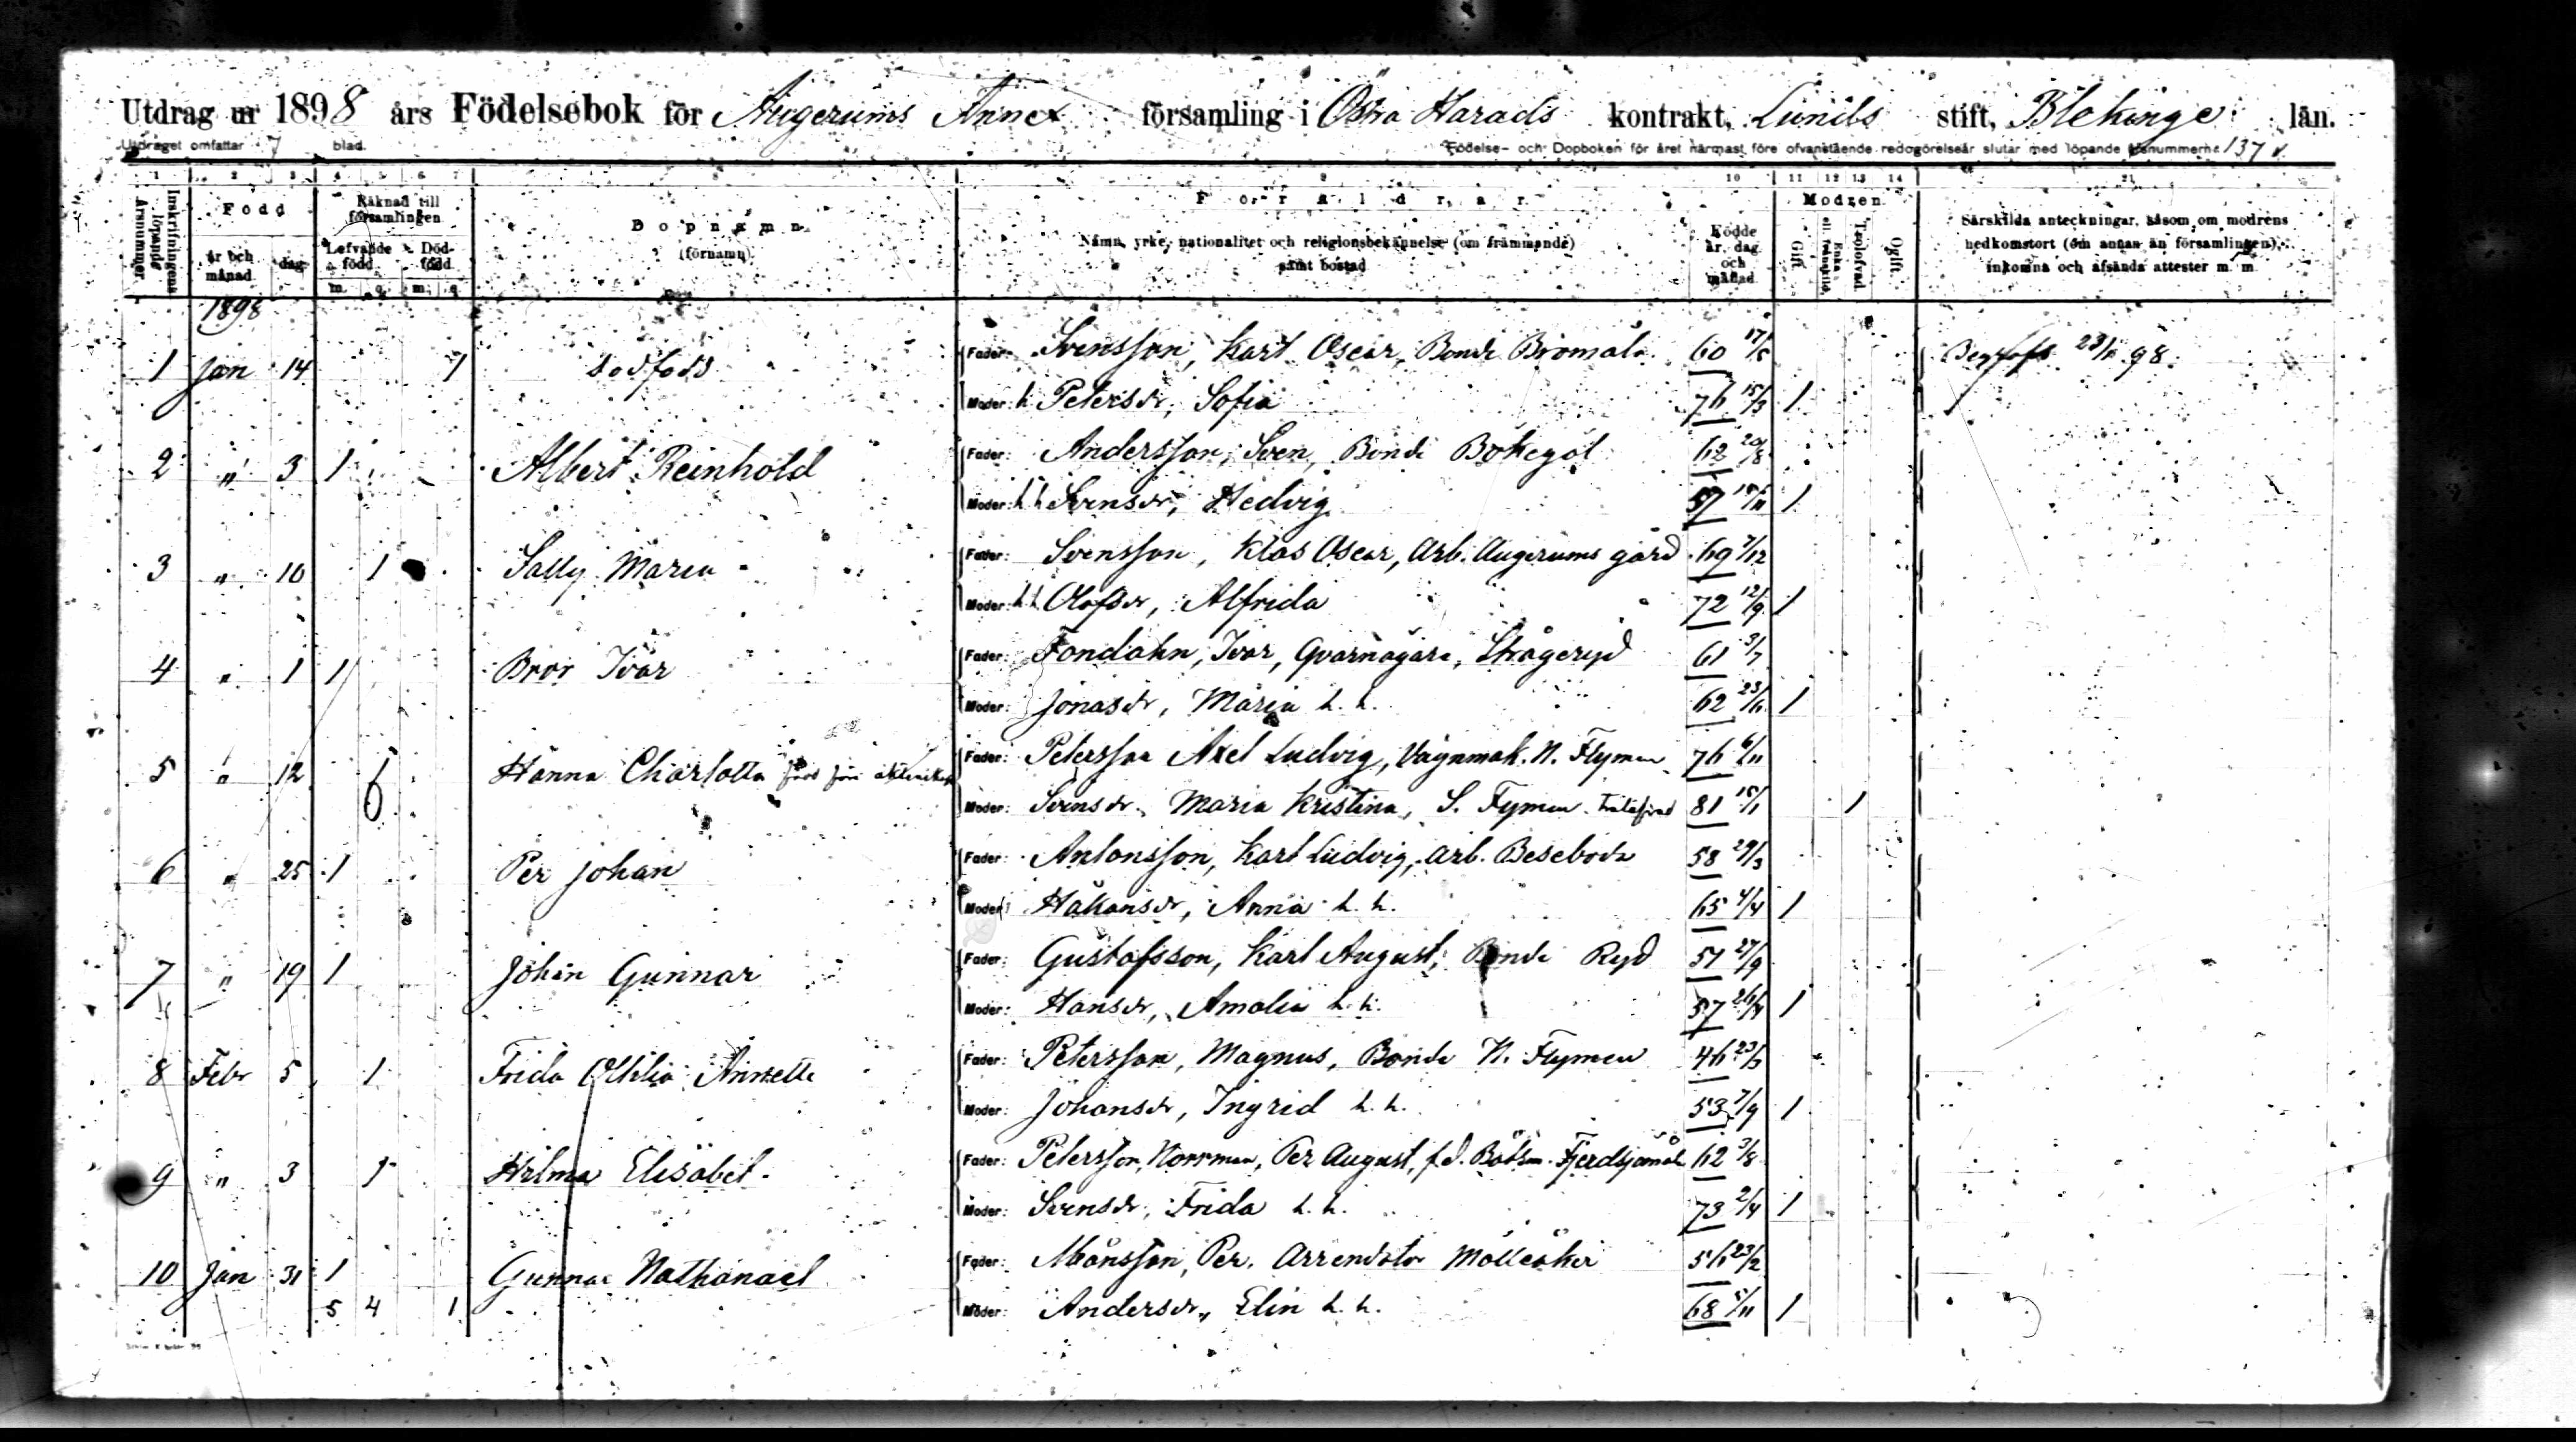 Utdrag ur 1898 års Födelsebok för Augerums Annex församling i Östra Härads kontrakt, Lunds stift, Blekinge län.
Utdraget omfattar 7 blad. Födelse- och Dopboken för året närmast före ofvanstående redogörelseår slutar med löpande årsnummern 137
1 2 3 4 5 6 7 8 9 10 11 12 13 14 21
Inskrifningens löpande Årsnummer Född Räknad till församlingen Dopnamn (förnamn) Föräldrar Modren
år och månad dag Lefvande född Dödfödd m. q. m. q. Namn, yrke, nationalitet och religionsbekännelse (om främmande) samt bostad Födde år, dag och månad Gift Enka el. frånskild Trolofvad Ogift Särskilda anteckningar, såsom om modrens nedkomstort (om annan än församlingen), inkomna och afsända attester m. m.
1898
1 Jan 14 1 dödfödd Fader: Svensson, Karl Oscar, Bonde Bromåla 60 17/5 98
Moder: h Petersdr, Sofia 76 15/3 1
2 " 3 1 Albert Reinhold Fader: Andersson, Sven, Bonde Bökegöl 62 20/8
Moder: h h Svensdr, Hedvig 57 18/11 1
3 " 10 1 Sally Maria Fader: Svensson, Klas Oscar, Arb. Augerums gård 69 7/12
Moder: h h Olofsdr, Alfrida 72 12/9 1
4 " 1 1 Bror Ivar Fader: Fondahn, Ivar, Qvarnägare, Strågeryd 61 3/7
Moder: Jonasdr, Maria h. h. 62 23/6 1
5 " 12 1 Hanna Charlotta född före äktenskap Fader: Petersson Axel Ludvig, Vagnmak. N. Flymen 76 6/11
Moder: Svensdr, Maria Kristina, S. Flymen 81 15/1 1
6 " 25 1 Per Johan Fader: Antonsson, Karl Ludvig, Arb. Beseboda 58 29/3
Moder: Håkansdr, Anna h. h. 65 4/4 1
7 " 19 1 Johan Gunnar Fader: Gustafsson, Karl August, Bonde Ryd 57 27/9
Moder: Hansdr, Amalia h. h. 57 26/4 1
8 Febr 5 1 Frida Ottilia Annette Fader: Petersson, Magnus, Bonde N. Flymen 46 23/5
Moder: Johansdr, Ingrid h. h. 53 7/9 1
9 " 3 1 Hilma Elisabet Fader: Petersson, Norrman, Per August, f.d. Båtsm. Fjerdsjömåla 62 3/8
Moder: Svensdr, Frida h. h. 73 2/4 1
10 Jan 31 1 Gunnar Nathanael Fader: Månsson, Per, Arrendator Mölleåker 56 23/2
5 4 1 Moder: Andersdr, Elin h. h. 68 5/11 1